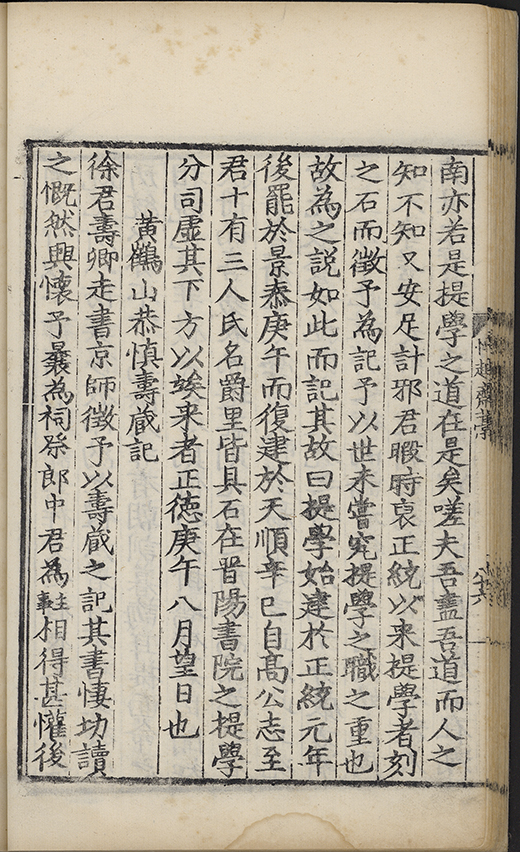 南亦若是提學之道在是矣嗟夫吾盡吾道而人之
知不知又安足計邪君暇時裒正統以來提學者刻
之石而徵予為記予以世未嘗究提學之職之重也
故為之説如此而記其故曰提學始建於正統元年
後罷於景泰庚午而復建於天順辛巳自髙公志至
君十有三人氏名爵里皆具石在晋陽書院之提學
分司虛其下方以竢来者正徳庚午八月望日也
黄鶴山恭慎壽藏記
徐君壽卿走書京師徵予以壽藏之記其書悽切讀
之慨然興懷予曩為祠祭郎中君為主事相得甚懽後